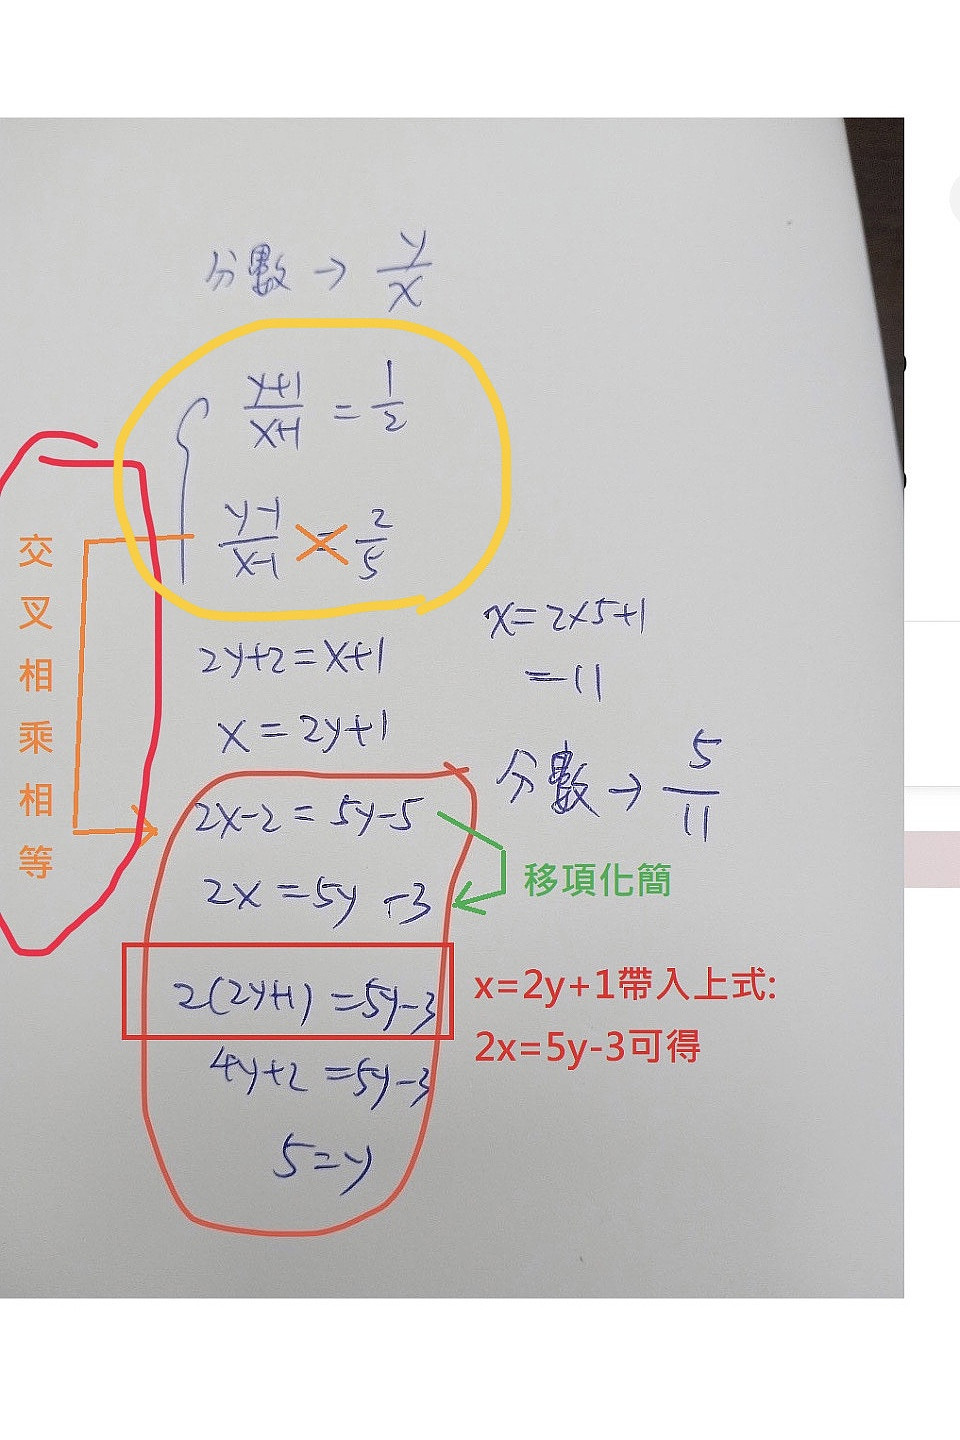 分數 → y/x
(y+1)/(x+1) = 1/2
(y-1)/(x-1) = 2/5
交叉相乘相等
2y+2=x+1
x=2y+1
2x-2=5y-5
2x=5y-3
移項化簡
2(2y+1)=5y-3
x=2y+1帶入上式:
2x=5y-3可得
4y+2=5y-3
5=y
x=2×5+1
=11
分數→ 5/11